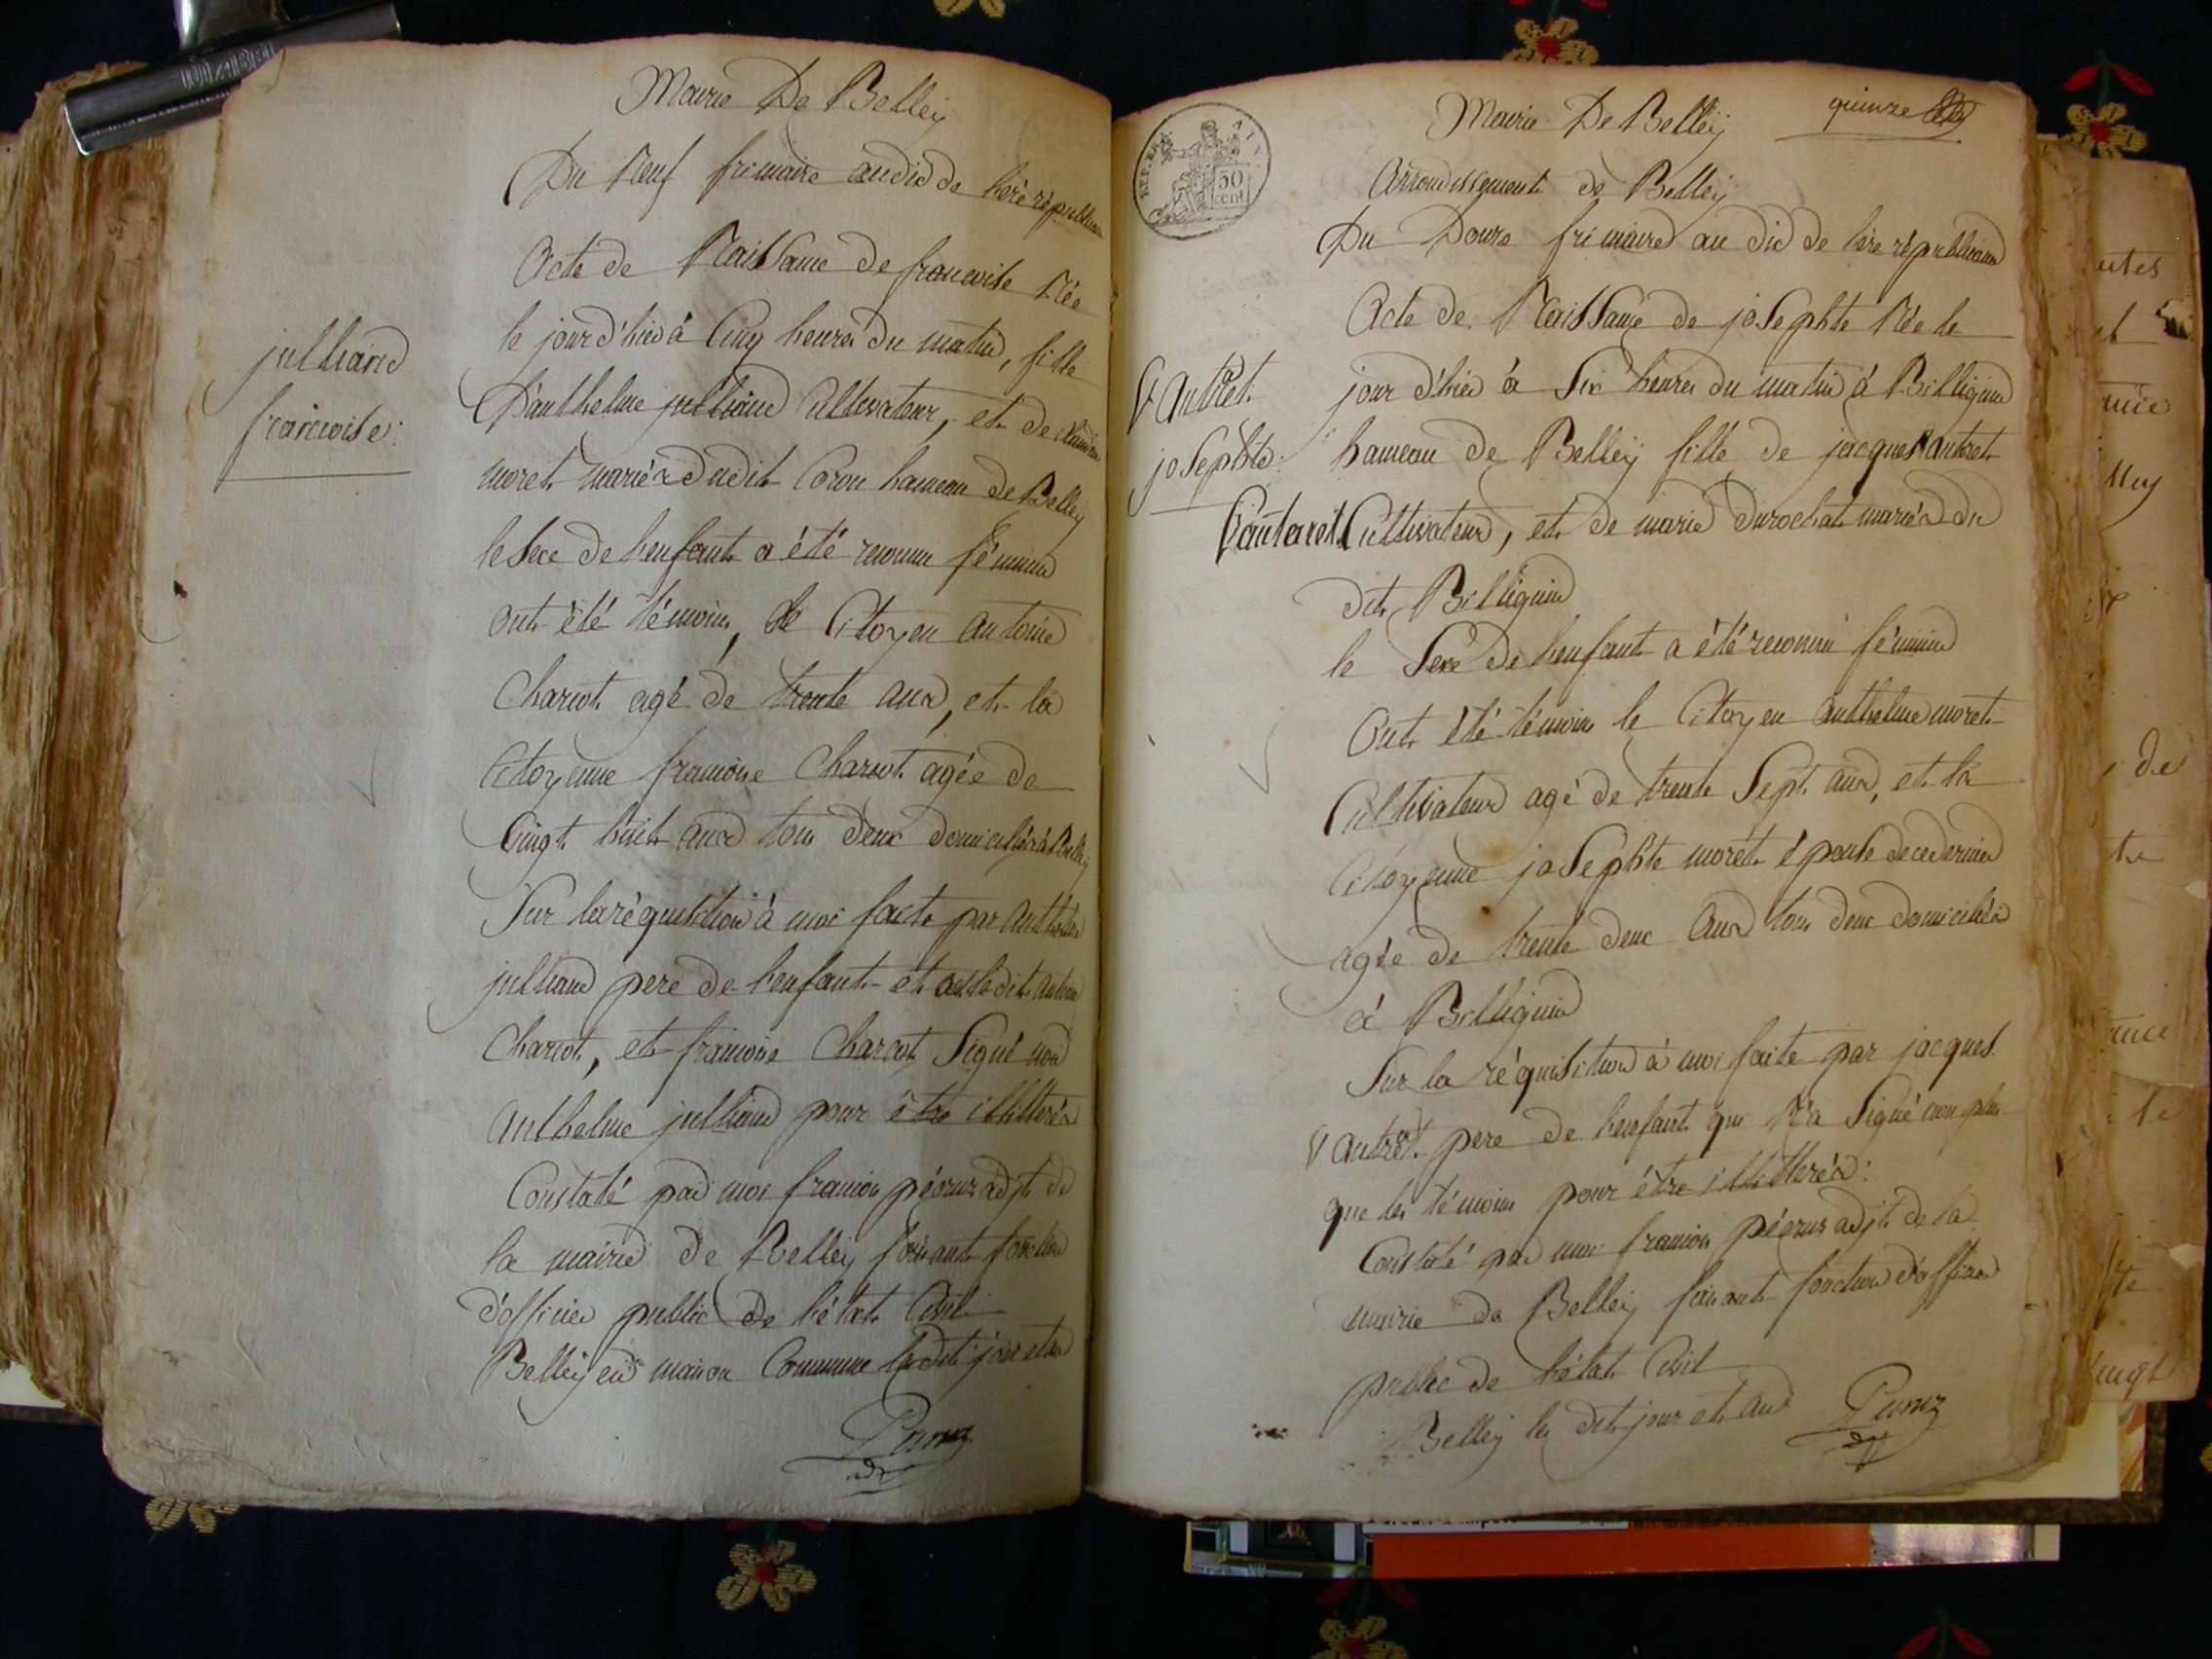 Mairie De Belleÿ
Du Neuf frimaire an dix de l'ère républicaine
Acte de Naissance de francoise Née
le jour d'hier à Cinq heures du matin, fille
D'anthelme julliand Cultivateur, et de
moret mariés dudit Coron hameau de Belleÿ
le Sexe de l'enfant a été reconnu féminin
Ont été témoins, le Citoyen antoine
Charcot agé de trente ans, et la
Citoyenne francoise Charcot agée de
Vingt huit ans tous deux domiciliés à Belleÿ
Sur la réquisition à moi faite par anthelme
julliand pere de l'enfant et antoine
Charcot, et francoise Charcot, Signé non
anthelme julliand pour être illiterés
Constaté par moi francois péeruz adjt. de
la mairie de Belleÿ faisant fonction
d'officier public de l'état Civil
Belleÿ en maison Commune jour et an
Peeruz
adjt
julliand
francoise:
REP. FRA.
50
cent.
Mairie De Belleÿ
quinze
Arrondissement de Belleÿ
Du Douze frimaire an dix de l'ère républicaine
Acte de Naissance de josephte Née le
jour d'hier à Six heures du matin à Billignin
hameau de Belleÿ fille de jacques Vautret
Cultivateur, et de marie Durochat mariés du
dit Billignin
le Sexe de l'enfant a été reconnu féminin
Ont été témoins le Citoyen anthelme moret
Cultivateur agé de trente Sept ans, et la
Citoyenne josephte moret épouse de ce dernier
agée de trente deux ans tous deux domiciliés
à Billignin
Sur la réquisition à moi faite par jacques
Vautret pere de l'enfant qui N'a Signé non plus
que les témoins pour être illitterés:
Constaté par moi francois péeruz adjt. de la
mairie de Belleÿ faisant fonction d'officier
public de l'état Civil
Belleÿ les dits jour et an
Peeruz
adjt
Vautret
josephte:
Vautaret
utes
et
lley
de
te
le
Vingt